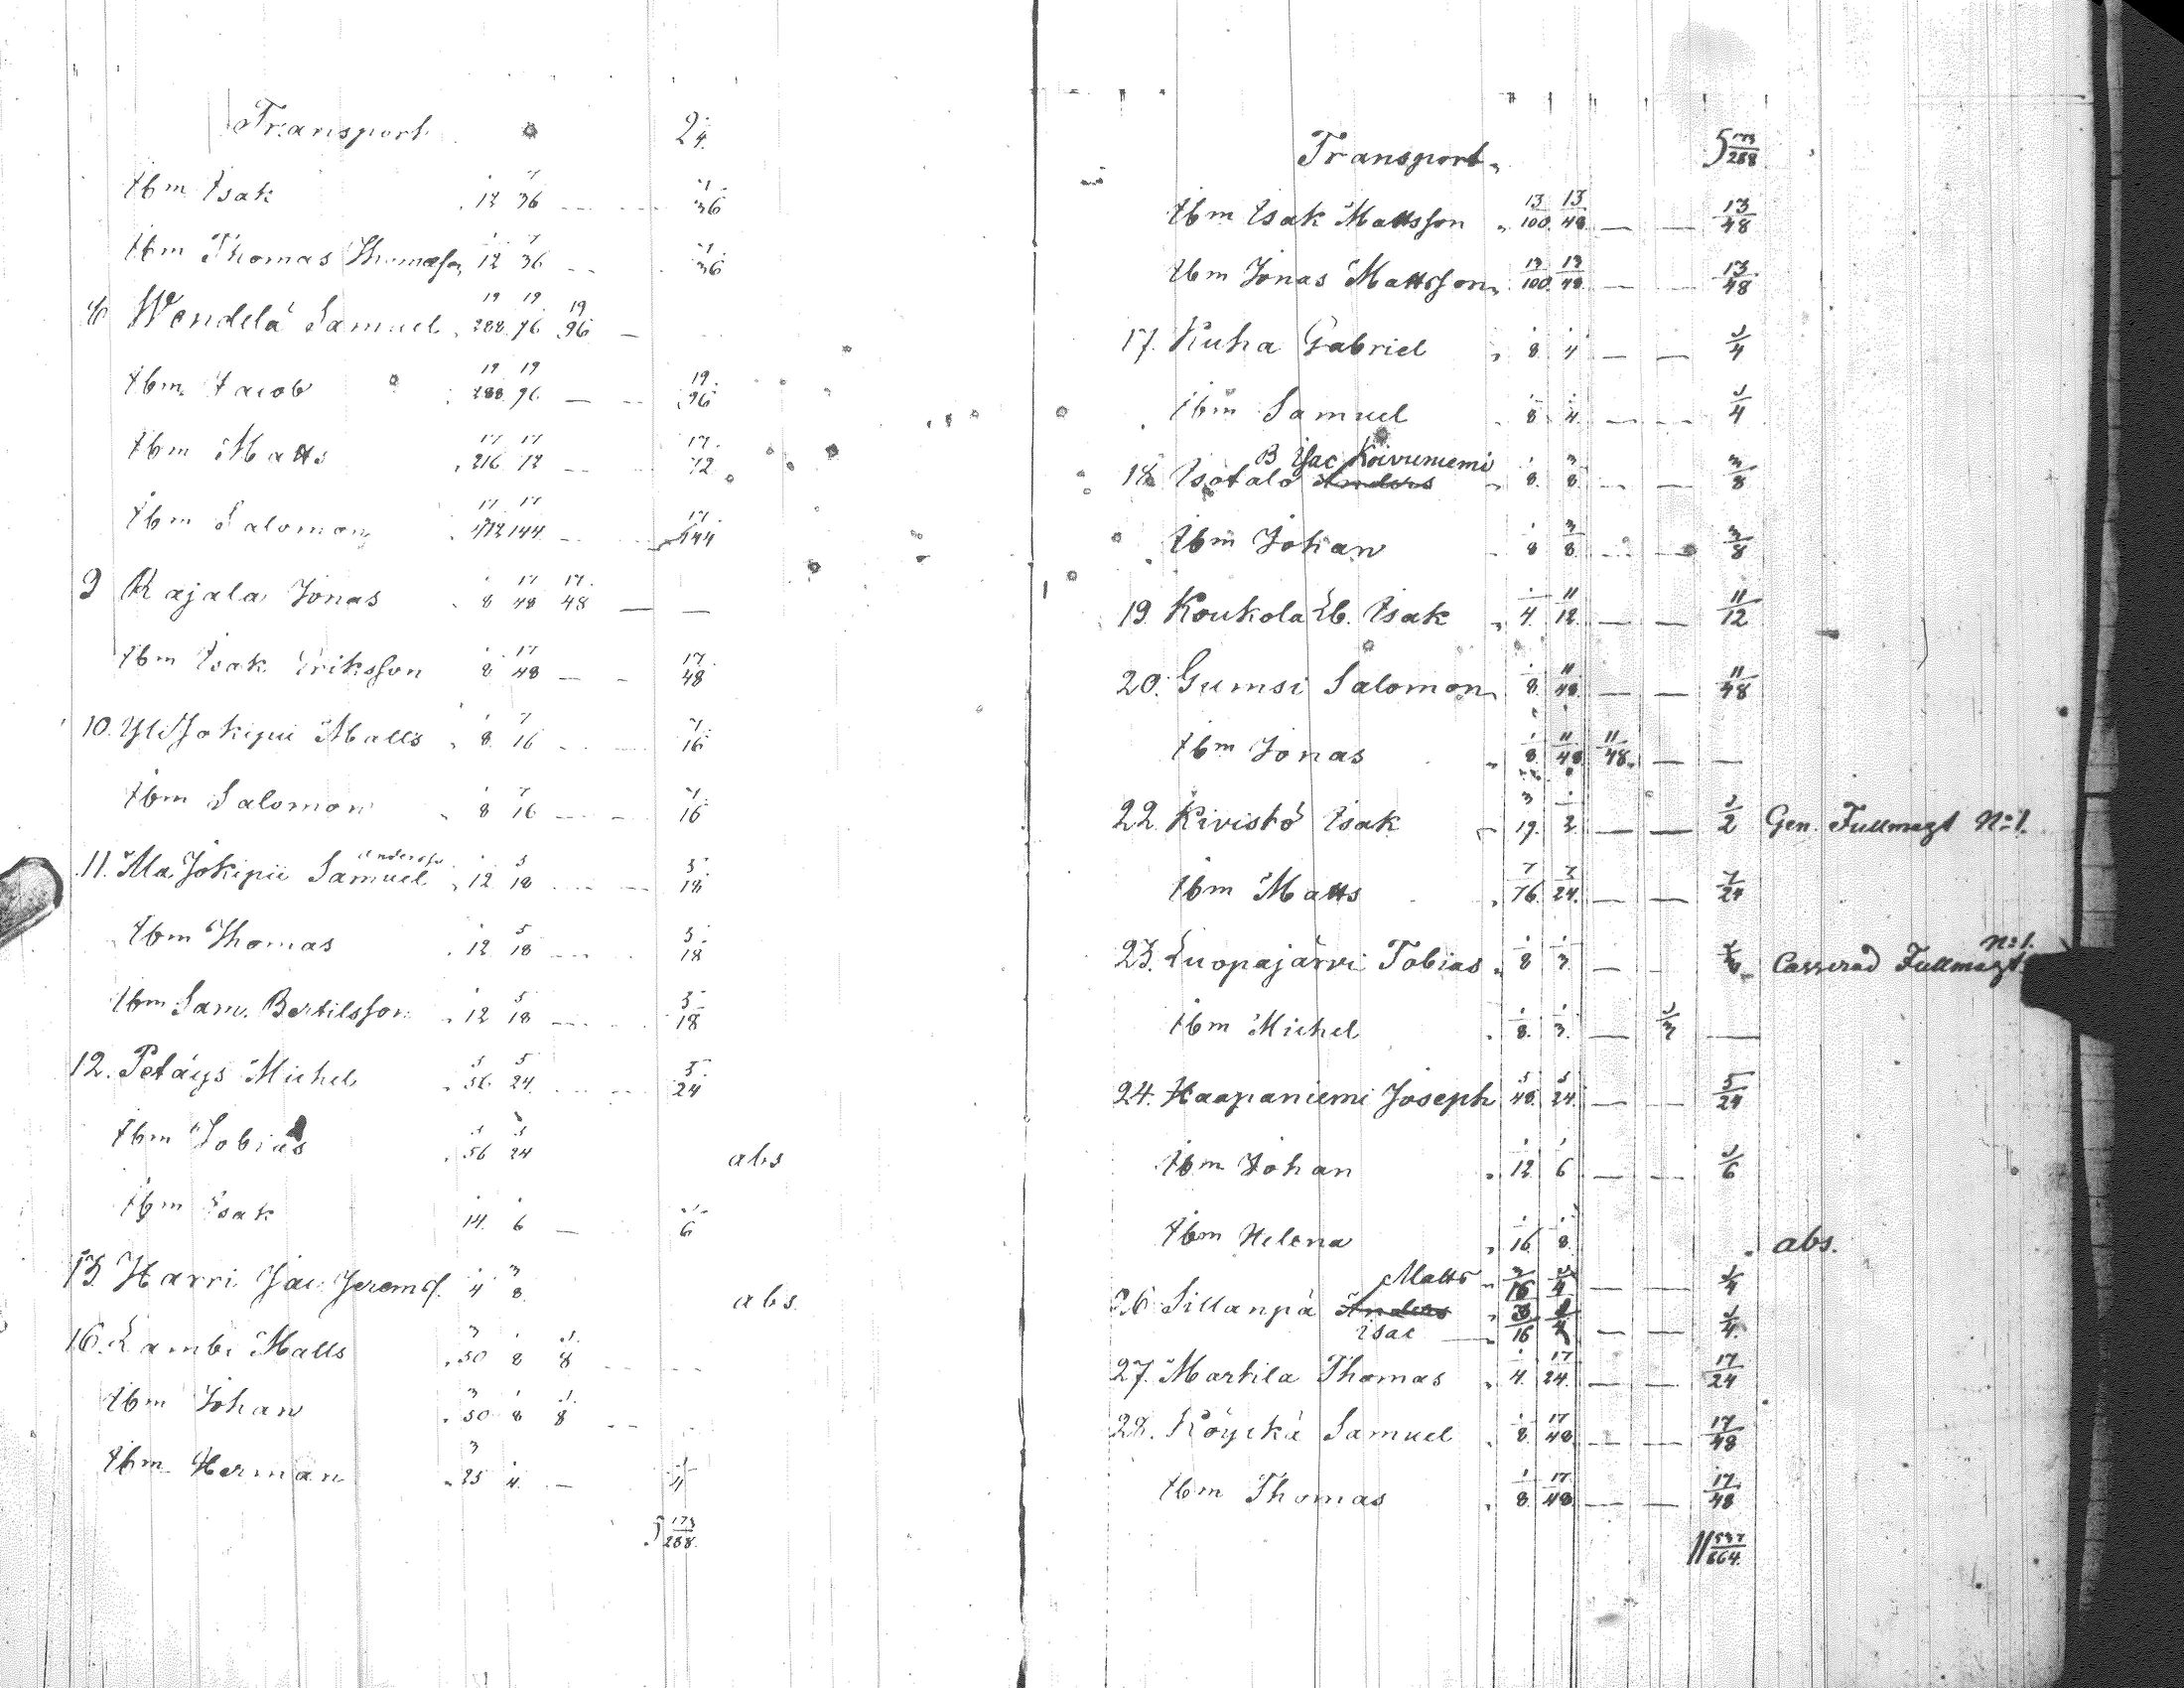 Transport 2 1/4.
Ibm Isak 1/12 7/36 — — 7/36
Ibm Thomas Thomasson 1/12 7/36 — — 7/36
8 Wendelä Samuel 19/288 19/96 19/96 —
Ibm Jacob 19/288 19/96 — — 19/96
Ibm Matts 17/216 17/72 — — 17/72
Ibm Salomon 17/432 17/144 — — 17/144
9 Rajala Jonas 1/8 17/48 17/48 — —
Ibm Isak Eriksson 1/8 17/48 — — 17/48
10. Yli Jokipii Matts 1/8 7/16 — — 7/16
Ibm Salomon 1/8 7/16 — — 7/16
11. Ala Jokipii Samuel Andersson 1/12 5/18 — — 5/18
Ibm Thomas 1/12 5/18 — — 5/18
Ibm Sam. Bertilsson 1/12 5/18 — — 5/18
12. Petäys Michel 5/56 5/24 — — 5/24
Ibm Tobias 5/56 5/24 abs
Ibm Isak 1/14 1/6 — 1/6
13. Harri Jac. Jerems. 1/4 3/8 abs.
16. Lambi Matts 3/50 1/8 1/8 — —
Ibm Johan 3/50 1/8 1/8 — —
Ibm Herman 3/25 1/4 — 1/4
5 173/288.
Transport 5 173/288
Ibm Isak Mattsson 13/100 13/48 — — 13/48
Ibm Jonas Mattsson 13/100 13/48 — — 13/48
17. Ruha Gabriel 1/8 1/4 — — 1/4
Ibm Samuel 1/8 1/4 — — 1/4
B Isac Koivuniemi
18. Isotalo Anders 1/8 3/8 — — 3/8
Ibm Johan 1/8 3/8 — — 3/8
19. Koukola Eb. Isak 1/4 11/12 — — 11/12
20. Gumsi Salomon 1/8 11/48 — — 11/48
Ibm Jonas 1/8 11/48 11/48 — —
22 Kivistö Isak 3/19 1/2 — — 1/2 Gen. Fullmagt No 1.
Ibm Matts 7/76 7/24 — — 7/24
23. Luopajärvi Tobias 1/8 1/3 — — 1/3 Casserad Fullmagt No 1.
Ibm Michel 1/8 1/3 — 1/3 —
24. Haapaniemi Joseph 5/48 5/24 — — 5/24
Ibm Johan 1/12 1/6 — — 1/6
Ibm Helena 1/16 1/8 abs.
Matts 3/16 1/4 — — 1/4
26 Sillanpä Anders
isac — 3/16 1/4 — — 1/4
27. Martila Thomas 1/4 17/24 — — 17/24
28. Röyskä Samuel 1/8 17/48 — — 17/48
Ibm Thomas 1/8 17/48 — — 17/48
11 537/864.